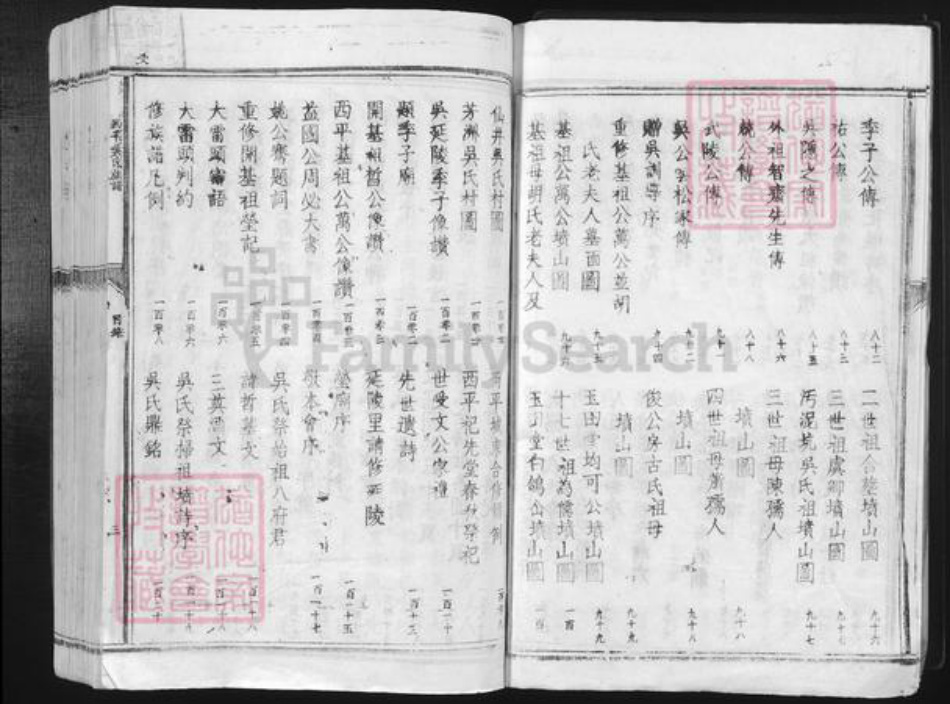 季子公傳 八十二
祐公傳 八十三
吳隱之傳 八十五
外祖智齋先生傳 八十六
兢公傳 八十八
武陵公傳 九十一
吳公茅松家傳 九十二
贈吳訓導序 九十四
重修基祖公萬公並胡
氏老夫人墓面圖 九十五
基祖公萬公墳山圖 九十六
基祖母胡氏老夫人及
二世祖合墓墳山圖 九十六
三世祖虞卿墳山圖 九十七
污泥坑吳氏祖墳山圖 九十七
三世祖母陳孺人
墳山圖 九十八
四世祖母蕭孺人
墳山圖 九十八
俊公房古氏祖母
墳山圖 九十九
玉田堂均可公墳山圖 九十九
十七世祖為儒墳山圖 一百
玉田堂白鴿公墳山圖 一百
仙井吳氏村圖
芳洲吳氏村圖
吳延陵季子像讚 一百零二
題季子廟 一百零二
開基祖哲公像讚 一百零三
西平基祖公萬公像讚 一百零三
益國公周必大書 一百零四
兢公齋題詞 一百零四
重修開基祖塋記 一百零五
大雷頭寓語 一百零六
大雷頭判約 一百零六
修族譜凡例 一百零八
西平祀先堂春秋祭祀
世受文公家禮 一百一十
先世遺詩 一百一十三
延陵里請修延陵
塋廟序 一百一十五
敬本會序 一百一十七
吳氏祭始祖八府君
諱哲墓文 一百一十八
三英酒文 一百一十八
吳氏祭掃祖墳詩序 一百一十八
吳氏鼎銘 一百二十
目錄
三
FamilySearch